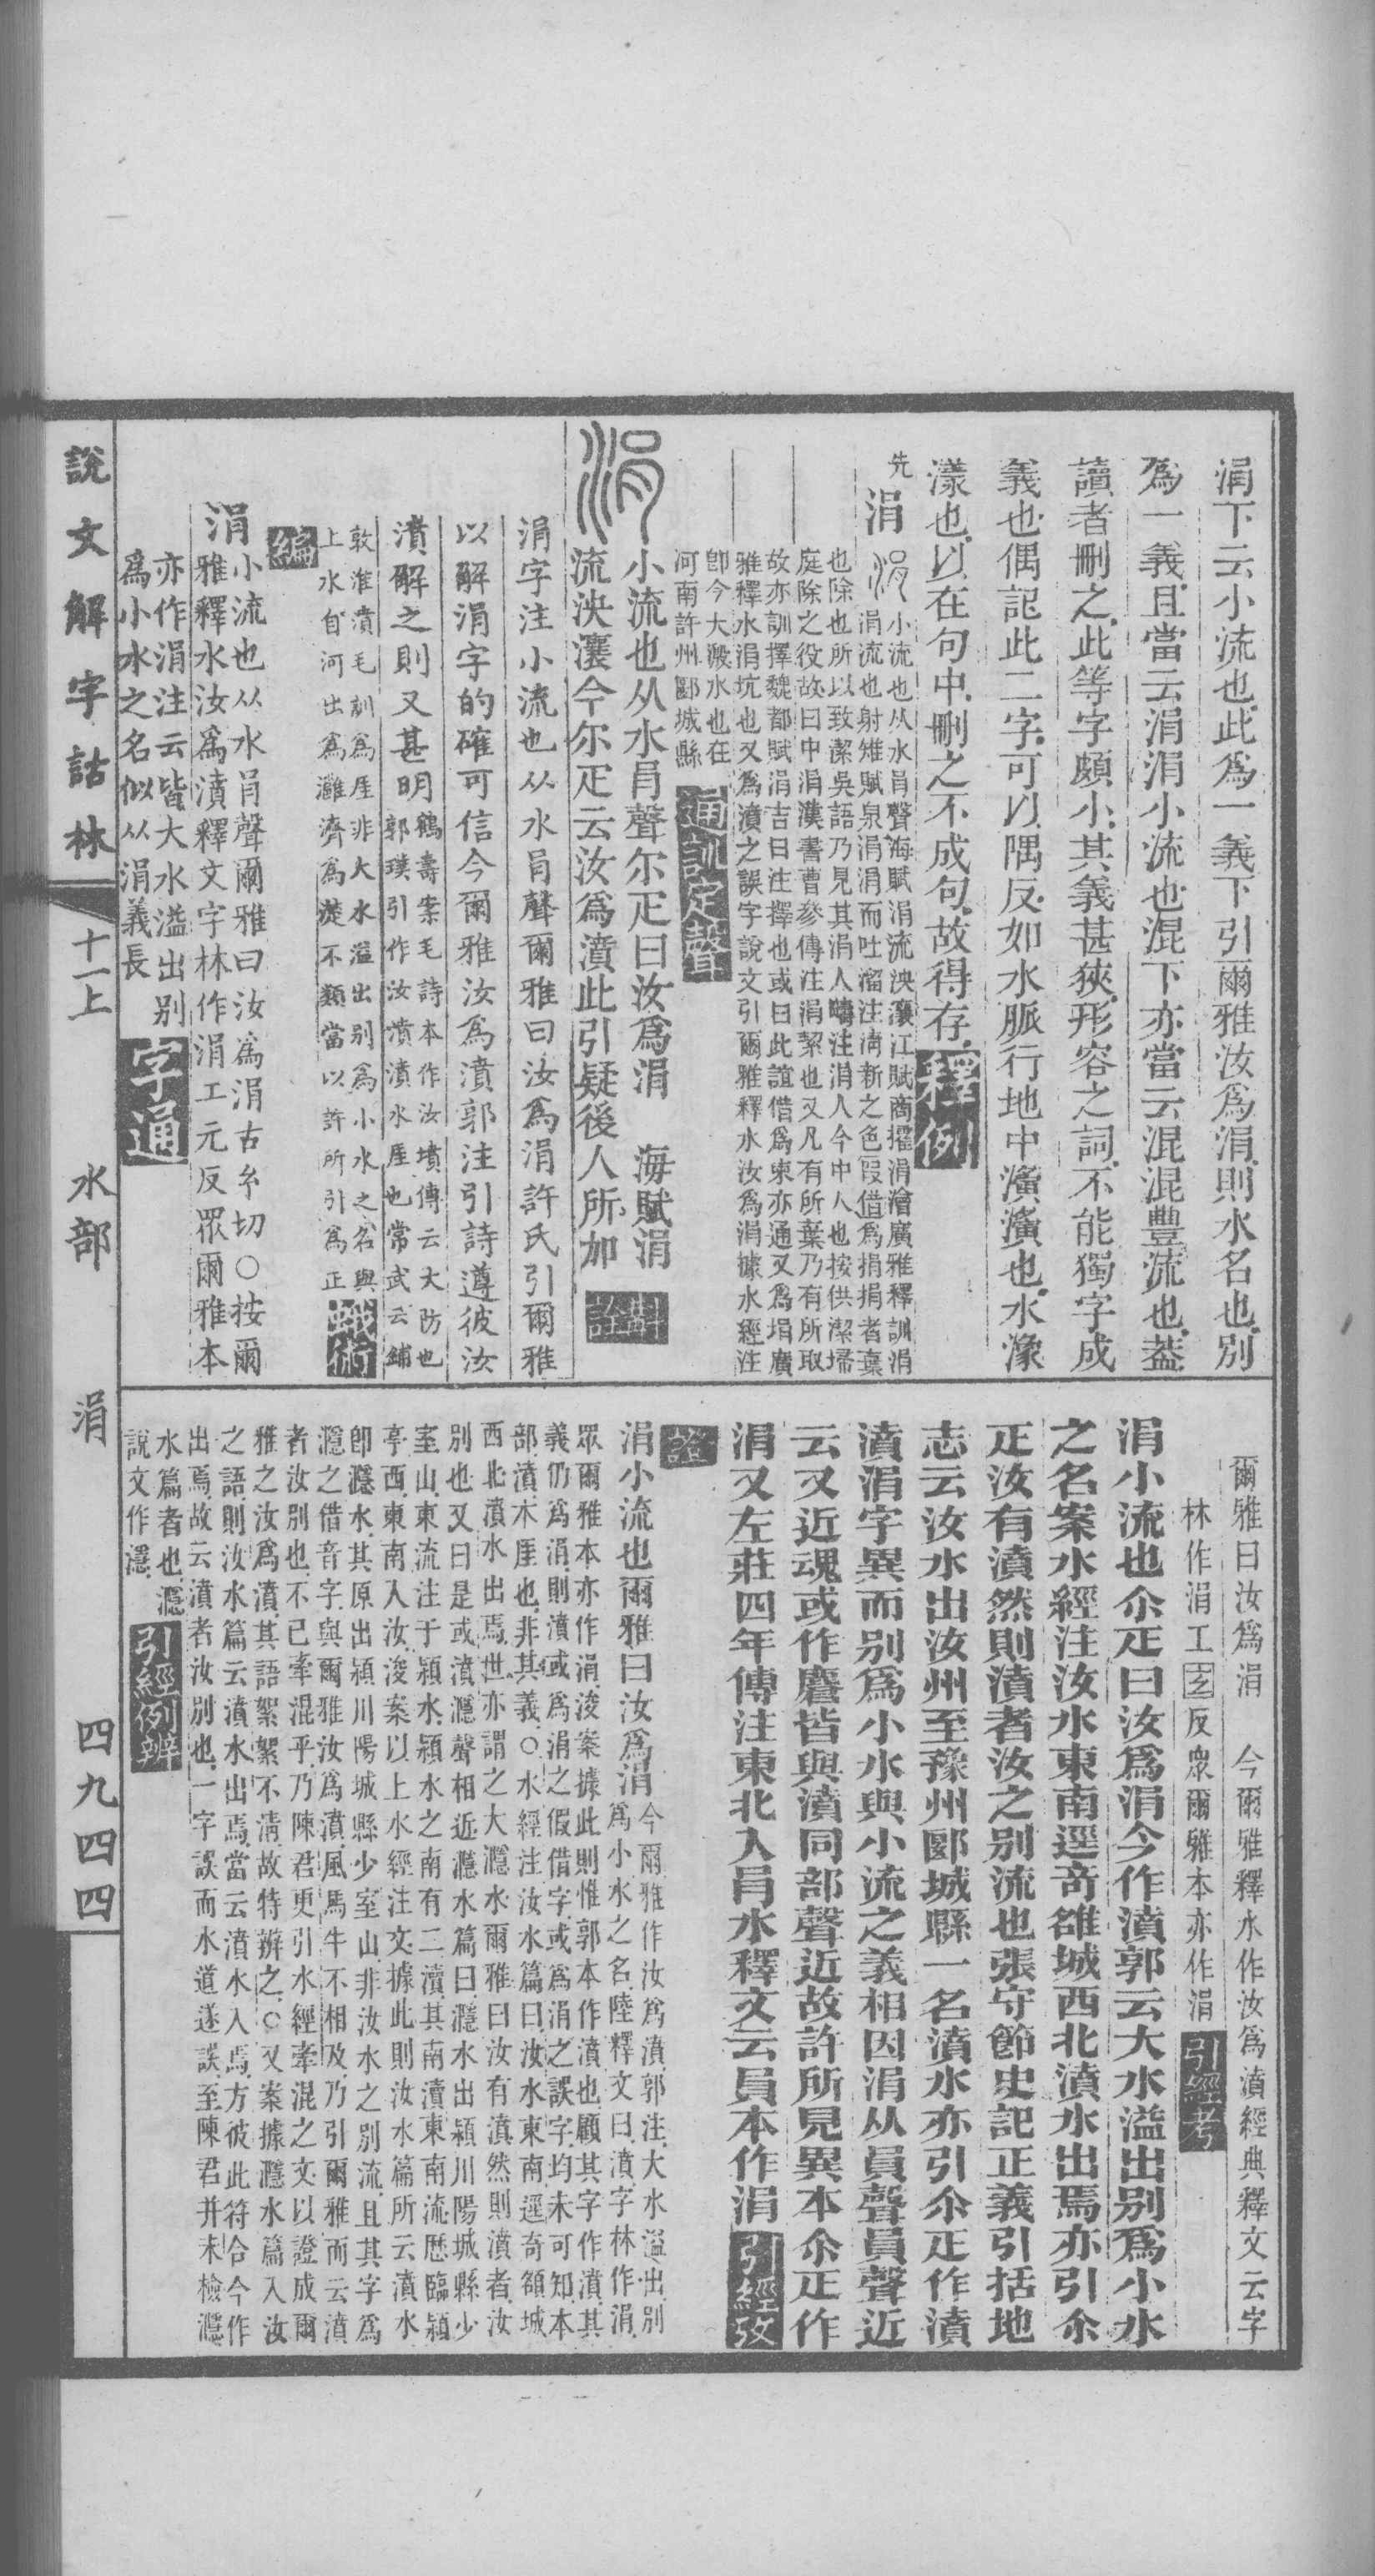 涓下云小流也此爲一義下引爾雅汝爲涓則水名也別
爲一義且當云涓涓小流也混下亦當云混混豐流也葢
讀者刪之此等字頗小其義甚狹形容之詞不能獨字成
義也偶記此二字可以隅反如水脈行地中濥濥也水潒
漾也以在句中刪之不成句故得存釋例
先
涓
小流也从水肙聲海賦涓流泱瀼江賦商搉涓澮廣雅釋訓涓
涓流也射雉賦泉涓涓而吐溜注清新之色叚借爲捐捐者棄
也除也所以致潔吳語乃見其涓人疇注涓人今中人也按供潔埽
庭除之役故曰中涓漢書曹參傳注涓絜也又凡有所棄乃有所取
故亦訓擇魏都賦涓吉日注擇也或曰此誼借爲柬亦通又爲埍廣
雅釋水涓坑也又爲濆之誤字說文引爾雅釋水汝爲涓據水經注
卽今大㶏水也在
河南許州郾城縣
通訓定聲
涓
小流也从水肙聲尔疋曰汝爲涓 海賦涓
流泱瀼今尔疋云汝爲濆此引疑後人所加
斠詮
涓字注小流也从水肙聲爾雅曰汝爲涓許氏引爾雅
以解涓字的確可信今爾雅汝爲濆郭注引詩遵彼汝
濆解之則又甚明
鶴壽案毛詩本作汝墳傳云大防也
郭璞引作汝濆濆水厓也常武云鋪
敦淮濆毛訓爲厓非大水溢出別爲小水之名與
上水自河出爲灉濟爲濋不類當以許所引爲正
蛾術
編
涓
小流也从水肙聲爾雅曰汝爲涓古糸切○按爾
雅釋水汝爲濆釋文字林作涓工元反眾爾雅本
亦作涓注云皆大水溢出別
爲小水之名似从涓義長
字通
爾雅曰汝爲涓 今爾雅釋水作汝爲濆經典釋文云字
林作涓工玄反眾爾雅本亦作涓引經考
涓小流也尒疋曰汝爲涓今作濆郭云大水溢出別爲小水
之名案水經注汝水東南逕奇雒城西北濆水出焉亦引尒
疋汝有濆然則濆者汝之別流也張守節史記正義引括地
志云汝水出汝州至豫州郾城縣一名濆水亦引尒疋作濆
濆涓字異而別爲小水與小流之義相因涓从員聲員聲近
云又近魂或作麏皆與濆同部聲近故許所見異本尒疋作
涓又左莊四年傳注東北入肙水釋文云員本作涓引經攷
證
涓小流也爾雅曰汝爲涓
今爾雅作汝爲濆郭注大水溢出別
爲小水之名陸釋文曰濆字林作涓
眾爾雅本亦作涓浚案據此則惟郭本作濆也顧其字作濆其
義仍爲涓則濆或爲涓之假借字或爲涓之誤字均未可知本
部濆木厓也非其義○水經注汝水篇曰汝水東南逕奇頟城
西北濆水出焉世亦謂之大㶏水爾雅曰汝有濆然則濆者汝
別也又曰是或濆㶏聲相近㶏水篇曰㶏水出潁川陽城縣少
室山東流注于潁水潁水之南有二濆其南濆東南流歷臨潁
亭西東南入汝浚案以上水經注文據此則汝水篇所云濆水
卽㶏水其原出潁川陽城縣少室山非汝水之別流且其字爲
㶏之借音字與爾雅汝爲濆風馬牛不相及乃引爾雅而云濆
者汝別也不已牽混乎乃陳君更引水經牽混之文以證成爾
雅之汝爲濆其語絮絮不清故特辨之○又案據㶏水篇入汝
之語則汝水篇云濆水出焉當云濆水入焉方彼此符合今作
出焉故云濆者汝別也一字誤而水道遂誤至陳君并未檢㶏
水篇者也㶏
說文作濦
引經例辨
說文解字詁林 十一上 水部 涓 四九四四